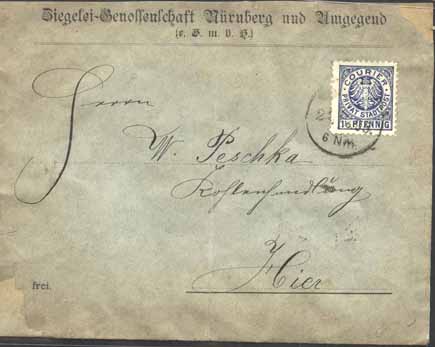 Ziegelei-Genossenschaft Nürnberg und Umgegend
(e. G. m. b. H.)
COURIER
PRIVAT STADTPOST
1½ PFENNIG
6 Nm.
Herrn
W. Peschka
Kohlenhandlung
Hier
frei.